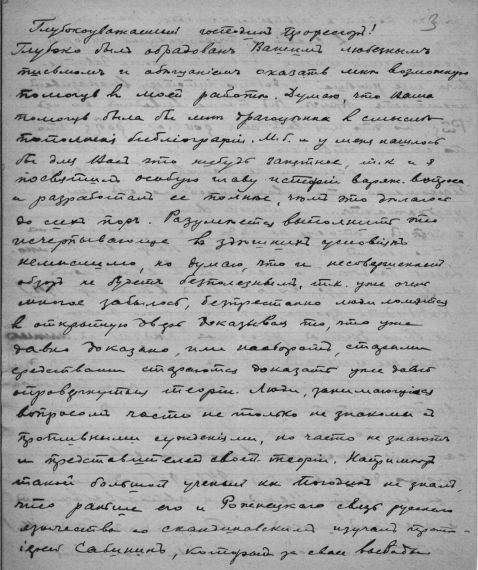 3
Глубокоуважаемый господинъ Профессоръ!
Глубоко былъ обрадованъ Вашимъ любезнымъ
письмомъ и обѣщаніемъ оказать мнѣ возможную
помощь въ моей работѣ. Думаю, что Ваша
помощь была бы мнѣ драгоцѣнна въ смыслѣ
пополненія библіографіи. М. б. и у меня нашлось
бы для Васъ что нибудь занятное, т. к. я
посвятилъ особую главу исторіи варяж. вопроса
и разработалъ ее полнѣе, чѣмъ это дѣлалось
до сихъ поръ. Разумѣется выполнить это
исчерпывающе въ здѣшнихъ условіяхъ
немыслимо, но думаю, что и несовершенный
обзоръ не будетъ безполезнымъ, т. к. уже очень
многое забылось, безпрестанно люди ломятся
въ открытую дверь доказывая то, что уже
давно доказано, или наоборотъ, старыми
средствами стараются доказать уже давно
опровергнутыя теоріи. Люди, занимающіеся
вопросомъ часто не только не знакомы съ
противными сужденіями, но часто не знаютъ
и представителей своей теоріи. Напримѣръ
такой большой ученый какъ Погодинъ не зналъ,
что раньше его и Рожнецкаго связь русскаго
язычества со скандинавскимъ изучалъ прото-
іерей Сабининъ, который за свои выводы